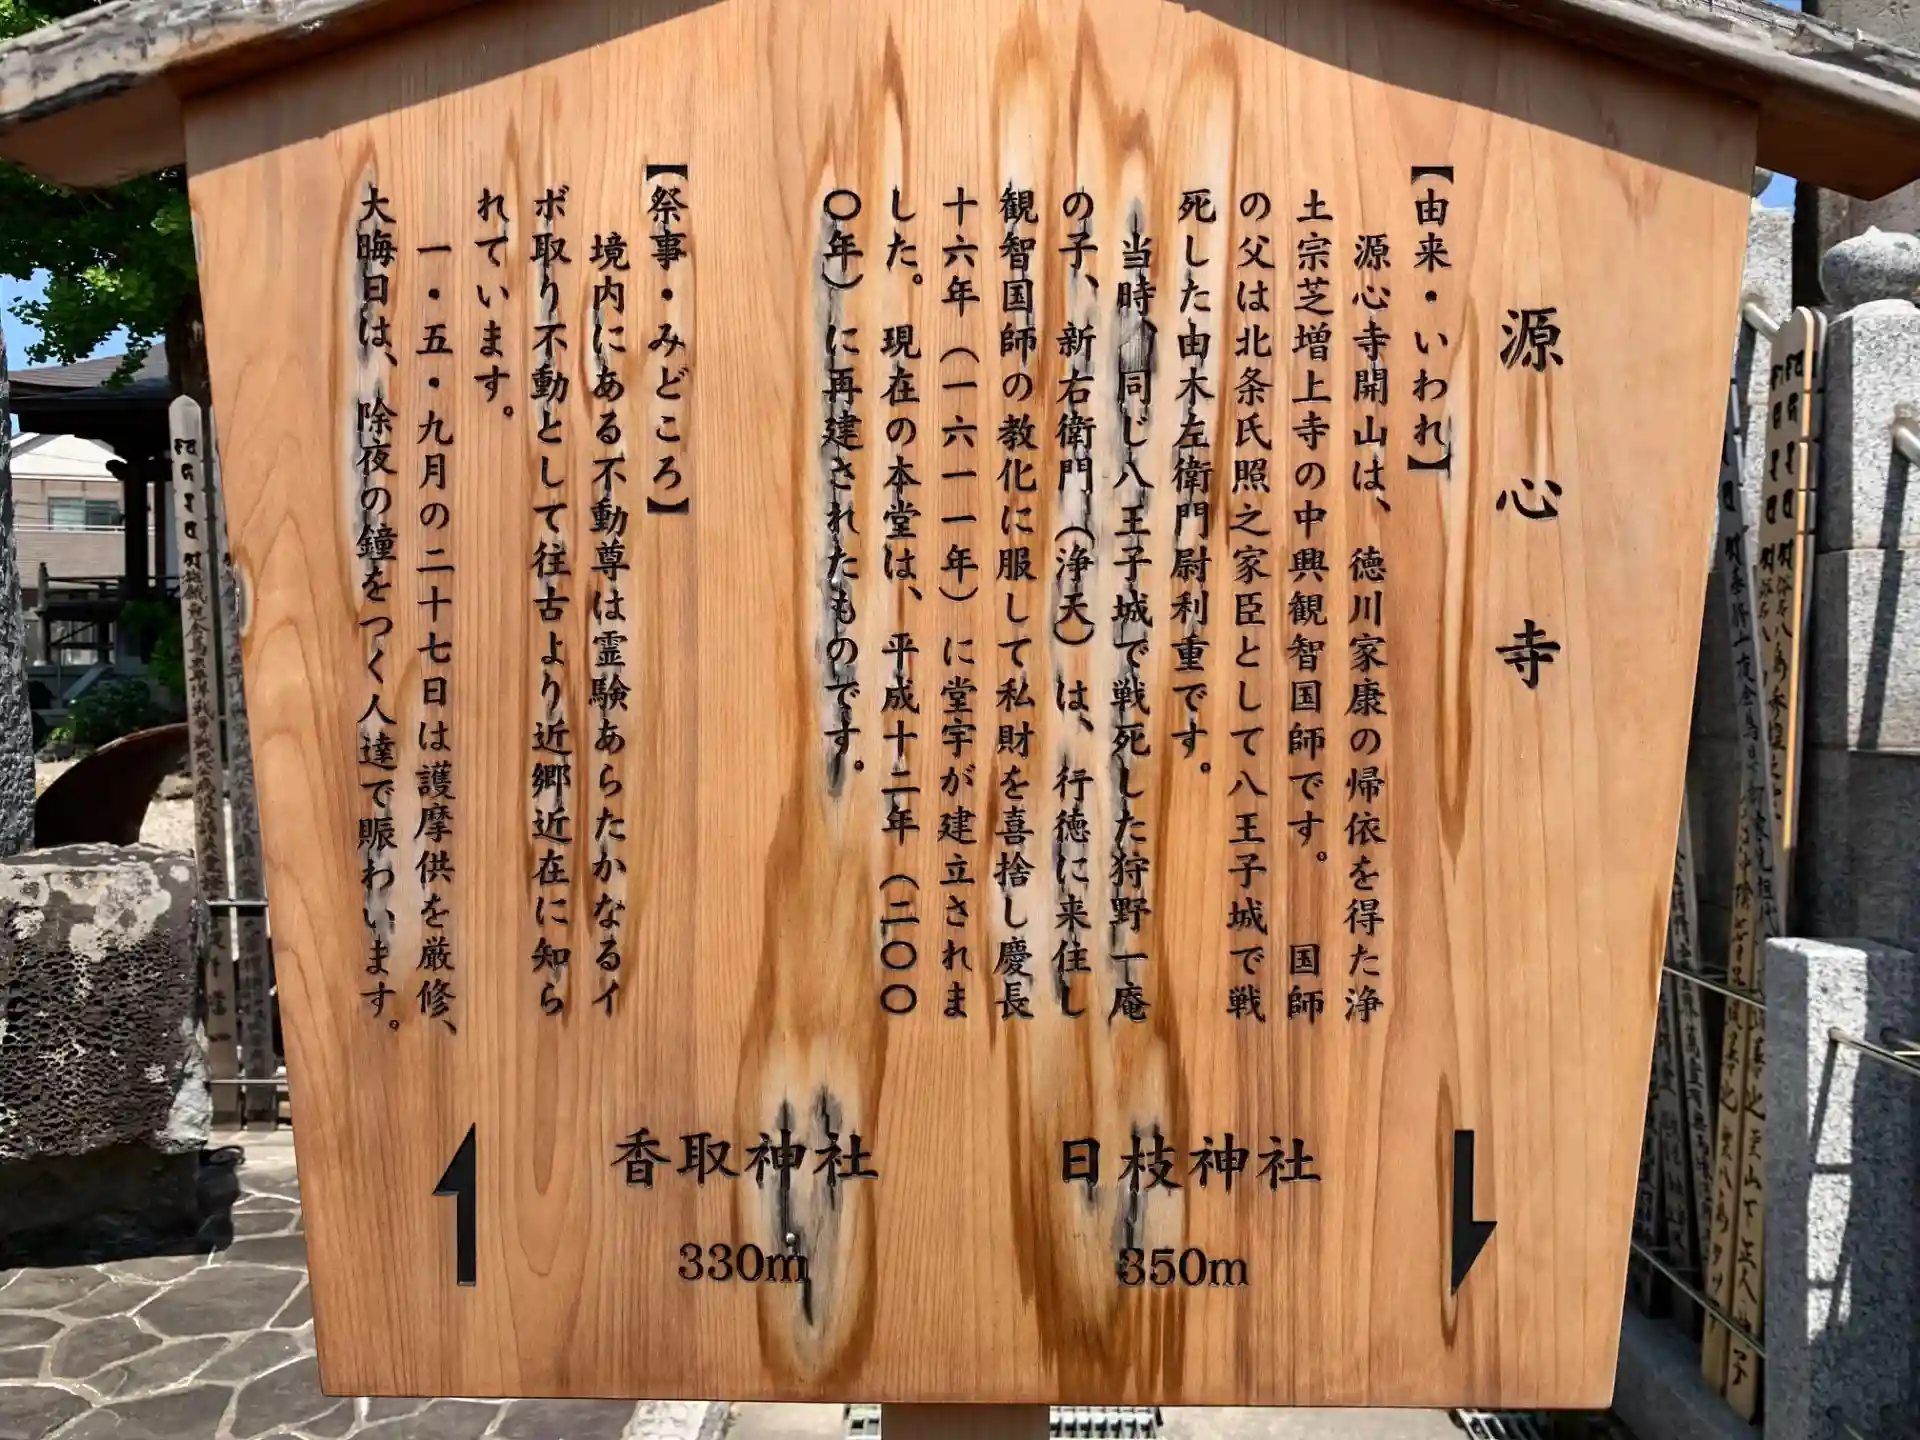 源心寺
【由来・いわれ】
源心寺開山は、徳川家康の帰依を得た浄
土宗芝増上寺の中興観智国師です。国師
の父は北条氏照之家臣として八王子城で戦
死した由木左衛門尉利重です。
当時、同じ八王子城で戦死した狩野一庵
の子、新右衛門（浄天）は、行徳に来住し
観智国師の教化に服して私財を喜捨し慶長
十六年（一六一一年）に堂宇が建立されま
した。現在の本堂は、平成十二年（二〇〇
〇年）に再建されたものです。
【祭事・みどころ】
境内にある不動尊は霊験あらたかなるイ
ボ取り不動として往古より近郷近在に知ら
れています。
一・五・九月の二十七日は護摩供を厳修、
大晦日は、除夜の鐘をつく人達で賑わいます。
日枝神社
350m
香取神社
330m